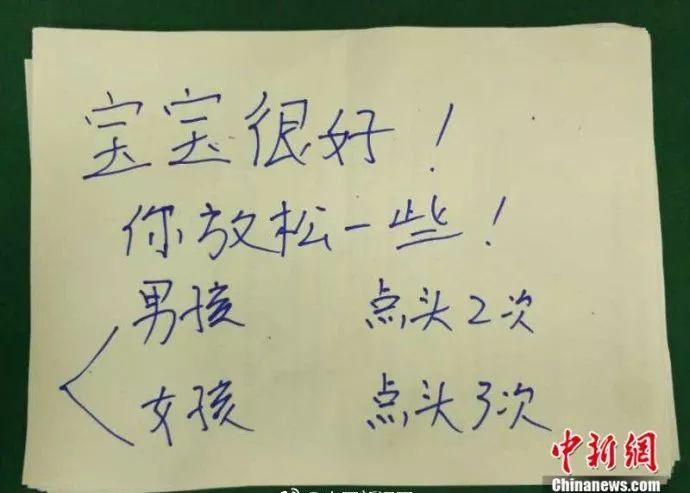 宝宝很好!
你放松一些!
男孩 点头2次
女孩 点头3次
中新网
Chinanews.com